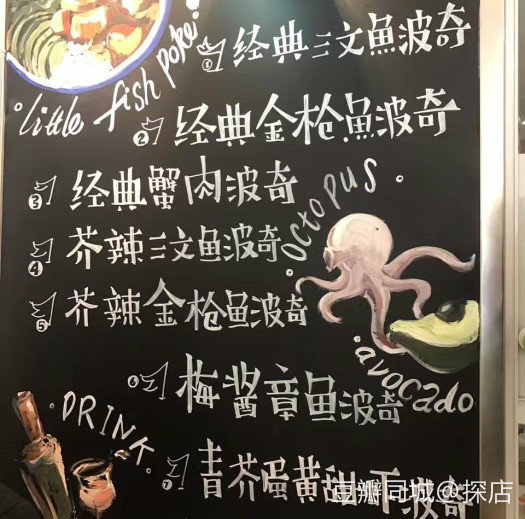 little fish poke
① 经典三文魚波奇
② 经典金枪魚波奇
③ 经典蟹肉波奇
octopus
④ 芥辣三文鱼波奇
⑤ 芥辣金枪鱼波奇
avocado
⑥ 梅酱章鱼波奇
DRINK
⑦ 青芥蛋黄甜下波奇
豆瓣同城@探店